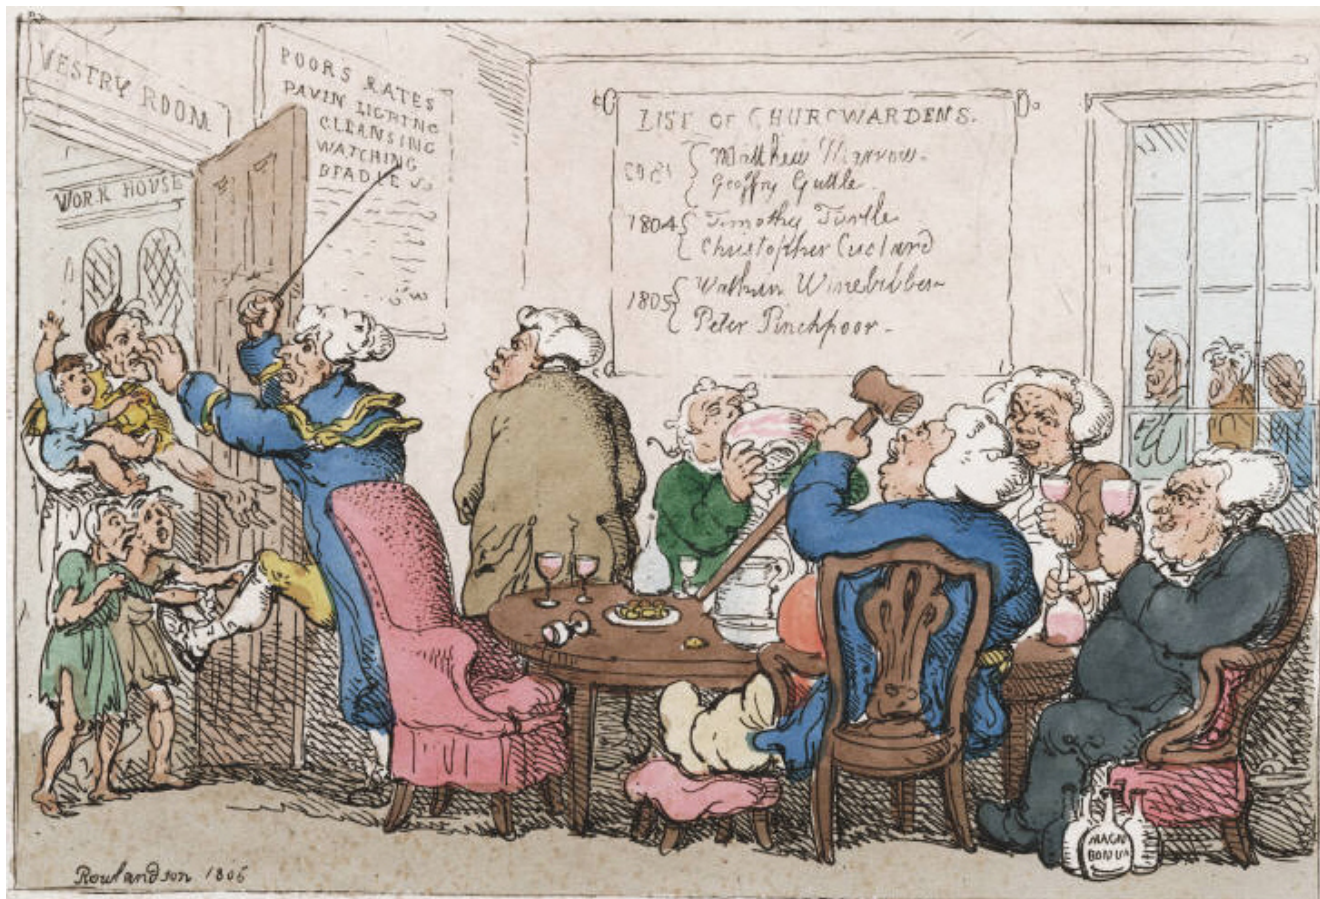 VESTRY ROOM
WORK HOUSE
POORS RATES
PAVIN LIGTING
CLEANSING
WATCHING
BEADLE
LIST OF CHURCWARDENS.
Matthew Marrow.
Geoffry Guttle.
1804 Timothy Turtle
Christopher Custard
1805 Watkin Winebibber
Peter Pinchpoor
MAGN
BONUM
Rowlandson 1806